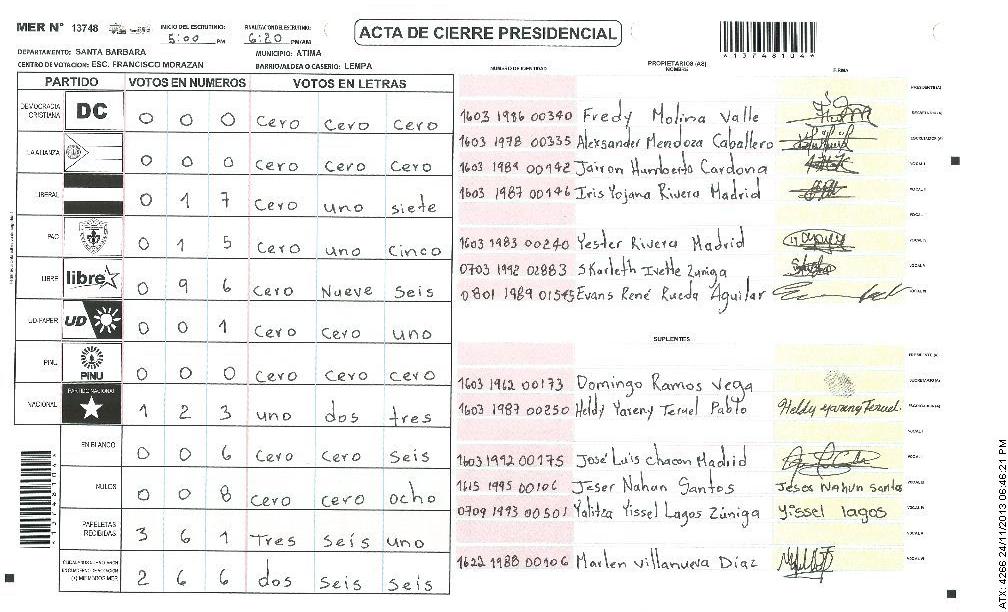 MER N° 13748 INICIO DEL ESCRUTINIO: 5:00 PM FINALIZACION DEL ESCRUTINIO: 6:20 PM/AM
ACTA DE CIERRE PRESIDENCIAL
*13748104*
DEPARTAMENTO: SANTA BARBARA MUNICIPIO: ATIMA
CENTRO DE VOTACION: ESC. FRANCISCO MORAZAN BARRIO/ALDEA O CASERIO: LEMPA
PARTIDO VOTOS EN NUMEROS VOTOS EN LETRAS
DEMOCRACIA CRISTIANA DC 0 0 0 Cero Cero Cero
LA ALIANZA 0 0 0 Cero Cero Cero
LIBERAL 0 1 7 Cero uno siete
PAC 0 1 5 Cero uno Cinco
LIBRE libre 0 9 6 Cero Nueve Seis
UD-FAPER UD 0 0 1 Cero Cero uno
PINU PINU 0 0 0 Cero Cero Cero
NACIONAL PARTIDO NACIONAL 1 2 3 uno dos tres
EN BLANCO 0 0 6 Cero Cero Seis
NULOS 0 0 8 Cero cero ocho
PAPELETAS RECIBIDAS 3 6 1 Tres Seis uno
(+) MIEMBROS MER 2 6 6 dos Seis Seis
NUMERO DE IDENTIDAD PROPIETARIOS (AS) NOMBRE FIRMA
PRESIDENTE(A)
1603 1986 00340 Fredy Molina Valle SECRETARIO(A)
1603 1978 00335 Alexsander Mendoza Caballero ESCRUTADOR(A)
1603 1984 00142 Jairon Humberto Cardona VOCAL I
1603 1987 00146 Iris Yojana Rivera Madrid
1603 1983 00240 Yester Rivera Madrid
0703 1992 02883 Skarleth Ivette Zuniga
0801 1989 01545 Evans René Rueda Aguilar
SUPLENTES
PRESIDENTE (A)
1603 1962 00173 Domingo Ramos Vega SECRETARIO(A)
1603 1987 00250 Heldy Yareny Teruel Pablo Heldy yareny Teruel. ESCRUTADOR(A)
1603 1992 00175 José Luis Chacon Madrid
1615 1995 00106 Jeser Nahun Santos Jeser Nahun santos
0709 1993 00501 Yalitza Yissel Lagos Zúniga Yissel lagos
1622 1988 00106 Marlen Villanueva Díaz
*13748104*
ATX: 4266 24/11/2013 06:46:21 PM